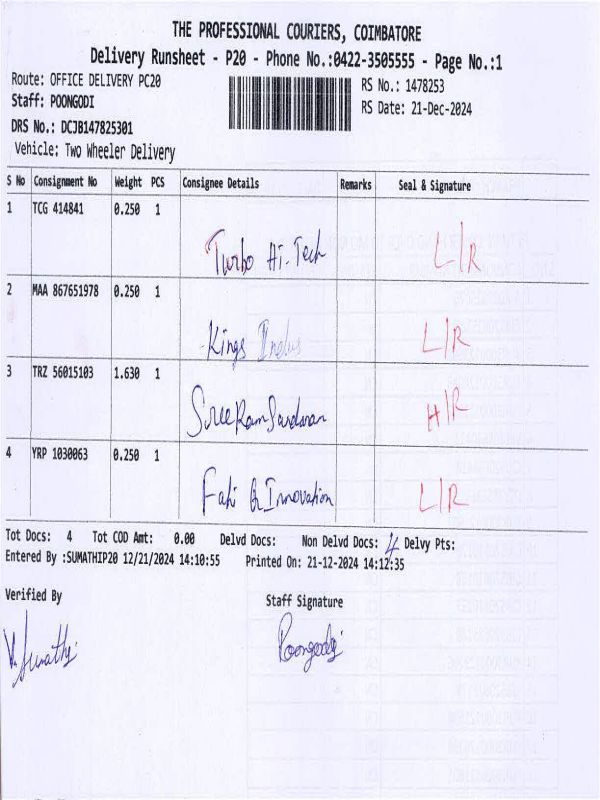 THE PROFESSIONAL COURIERS, COIMBATORE
Delivery Runsheet - P20 - Phone No.:0422-3505555 - Page No.:1
Route: OFFICE DELIVERY PC20
RS No.: 1478253
Staff: POONGODI
RS Date: 21-Dec-2024
DRS No.: DCJB147825301
Vehicle: Two Wheeler Delivery
S No Consignment No Weight PCS Consignee Details Remarks Seal & Signature
1 TCG 414841 0.250 1
Turbo Hi-Tech L/R
2 MAA 867651978 0.250 1
Kings Indus L/R
3 TRZ 56015103 1.630 1
Sree Ram Sardaran H/R
4 YRP 1030063 0.250 1
Innovation L/R
Tot Docs: 4 Tot COD Amt: 0.00 Delvd Docs: Non Delvd Docs: 4 Delvy Pts:
Entered By :SUMATHIP20 12/21/2024 14:10:55 Printed On: 21-12-2024 14:12:35
Verified By Staff Signature
V. Sumathi Poongodi